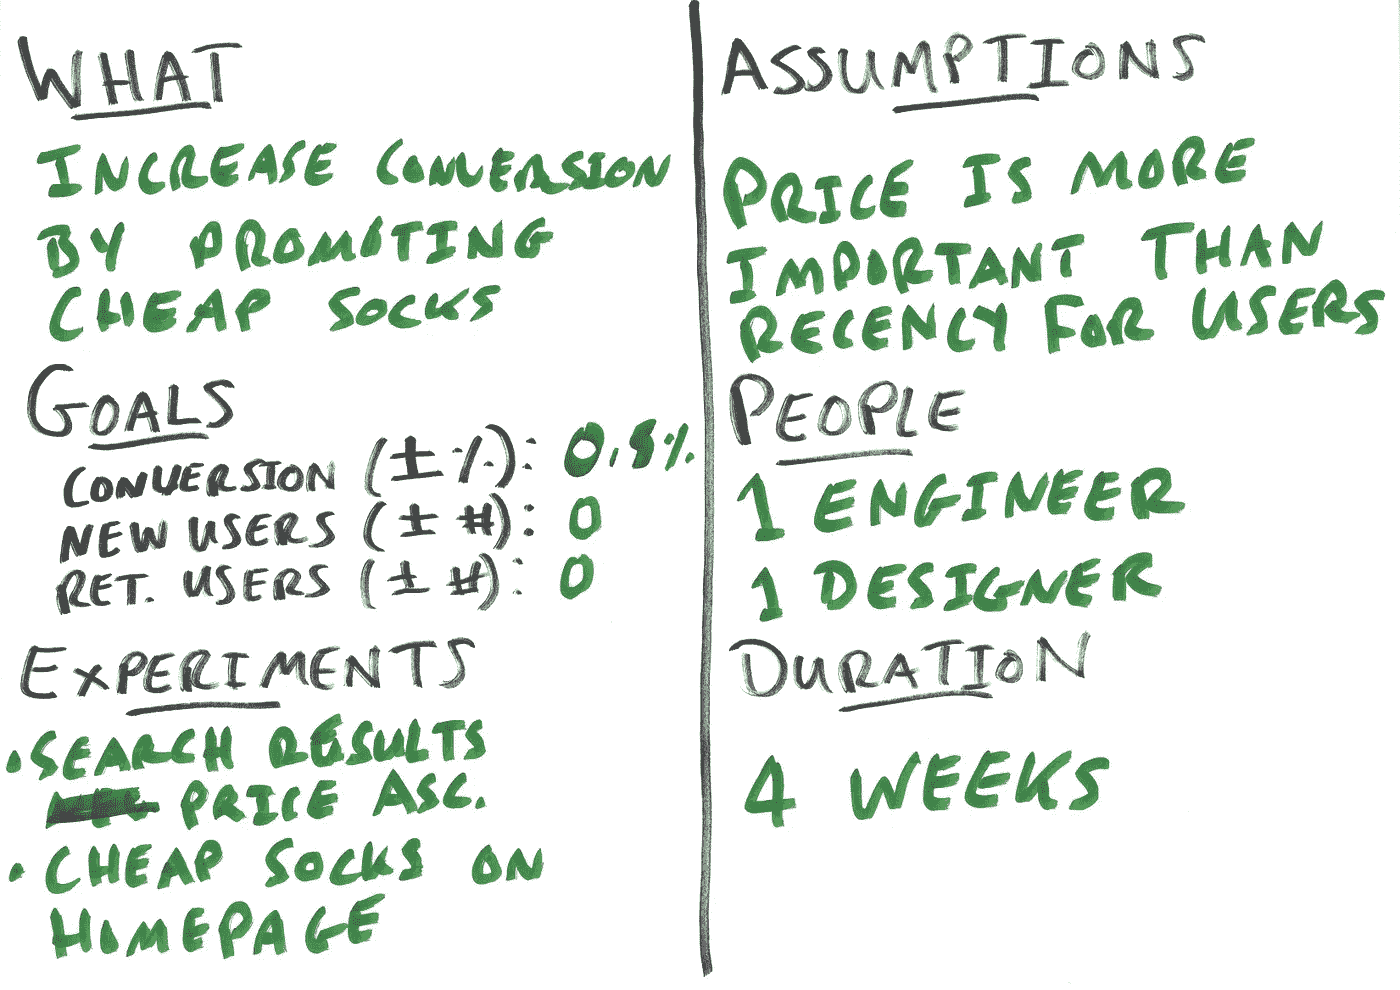 WHAT
INCREASE CONVERSION
BY PROMOTING
CHEAP SOCKS
GOALS
CONVERSION (± %): 0.5%
NEW USERS (± #): 0
RET. USERS (± #): 0
EXPERIMENTS
• SEARCH RESULTS
PRICE ASC.
• CHEAP SOCKS ON
HOMEPAGE
ASSUMPTIONS
PRICE IS MORE
IMPORTANT THAN
RECENCY FOR USERS
PEOPLE
1 ENGINEER
1 DESIGNER
DURATION
4 WEEKS